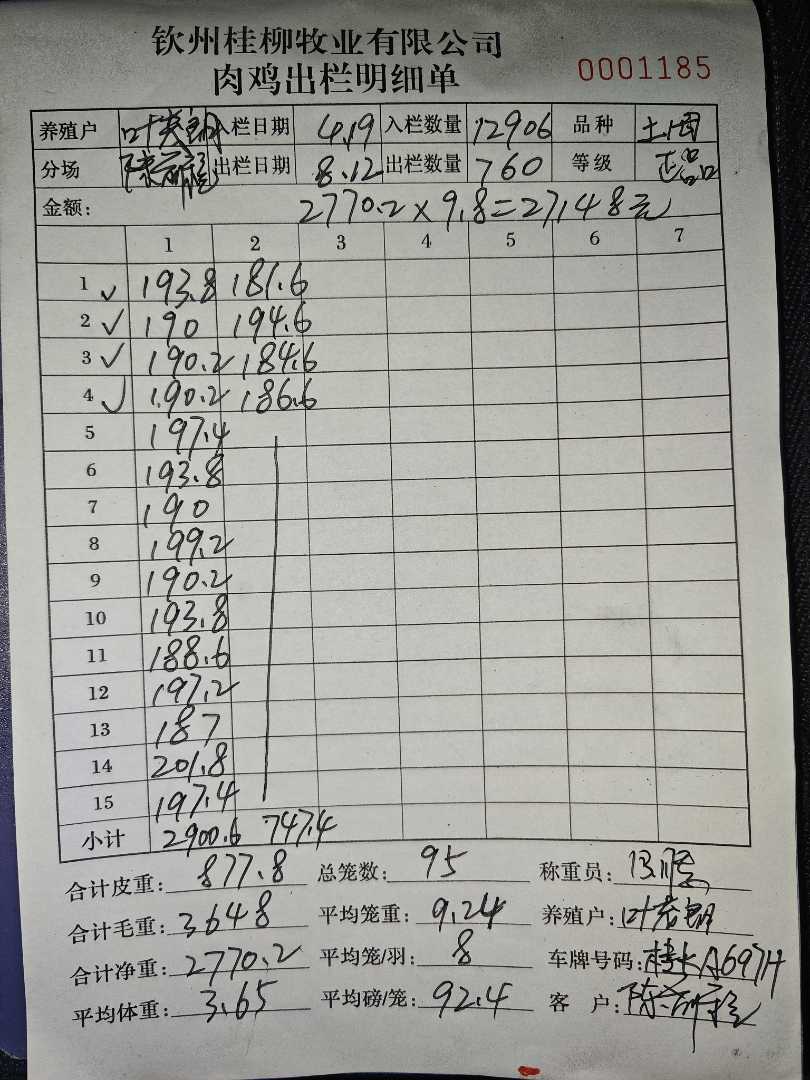 钦州桂柳牧业有限公司
肉鸡出栏明细单 0001185
养殖户 入栏日期 4.19 入栏数量 12906 品种
分场 出栏日期 8.12 出栏数量 760 等级 正品
金额: 2770.2×9.8=27148元
1 2 3 4 5 6 7
1 ✓ 193.8 181.6
2 ✓ 190 194.6
3 ✓ 190.2 184.6
4 ✓ 190.2 186.6
5 197.4
6 193.8
7 190
8 199.2
9 190.2
10 193.8
11 188.6
12 197.2
13 187
14 201.8
15 197.4
小计 2900.6 747.4
合计皮重: 877.8 总笼数: 95 称重员:
合计毛重: 3648 平均笼重: 9.24 养殖户:
合计净重: 2770.2 平均笼/羽: 8 车牌号码:
平均体重: 3.65 平均磅/笼: 92.4 客户: